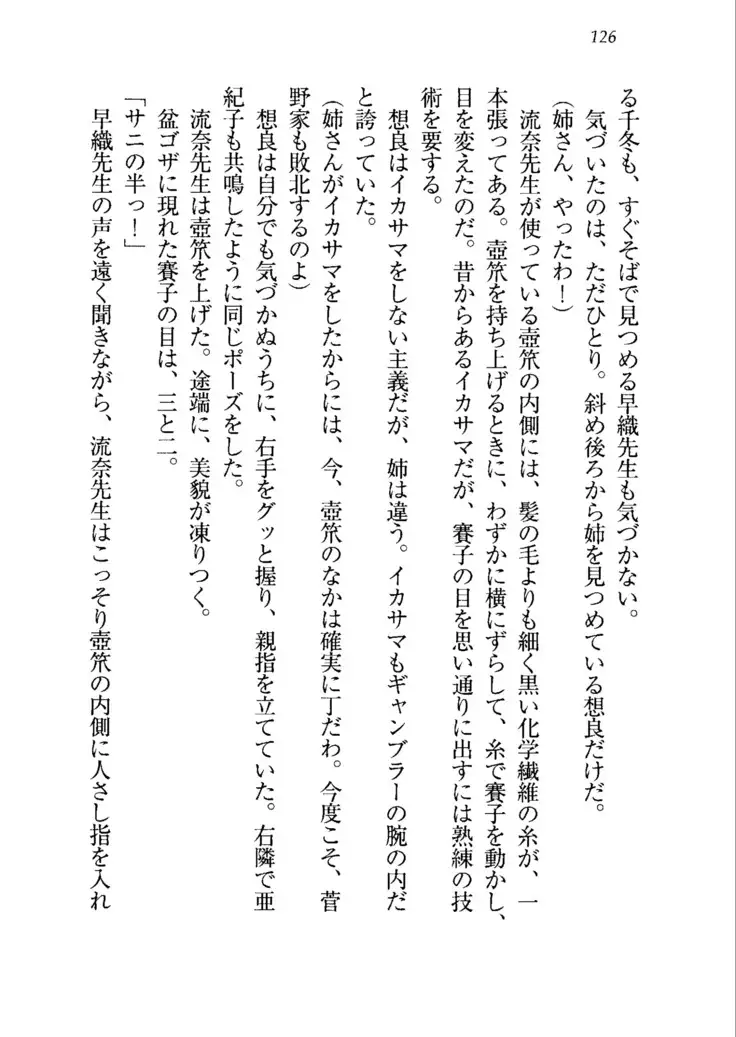 126
る千冬も、すぐそばで見つめる早織先生も気づかない。
気づいたのは、ただひとり。斜め後ろから姉を見つめている想良だけだ。
(姉さん、やったわ!)
流奈先生が使っている壺笊の内側には、髪の毛よりも細く黒い化学繊維の糸が、一
本張ってある。壺笊を持ち上げるときに、わずかに横にずらして、糸で賽子を動かし、
目を変えたのだ。昔からあるイカサマだが、賽子の目を思い通りに出すには熟練の技
術を要する。
想良はイカサマをしない主義だが、姉は違う。イカサマもギャンブラーの腕の内だ
と誇っていた。
(姉さんがイカサマをしたからには、今、壺笊のなかは確実に丁だわ。今度こそ、菅
野家も敗北するのよ)
想良は自分でも気づかぬうちに、右手をグッと握り、親指を立てていた。右隣で亜
紀子も共鳴したように同じポーズをした。
流奈先生は壺笊を上げた。途端に、美貌が凍りつく。
盆ゴザに現れた賽子の目は、三と二。
「サニの半っ!」
早織先生の声を遠く聞きながら、流奈先生はこっそり壺笊の内側に人さし指を入れ